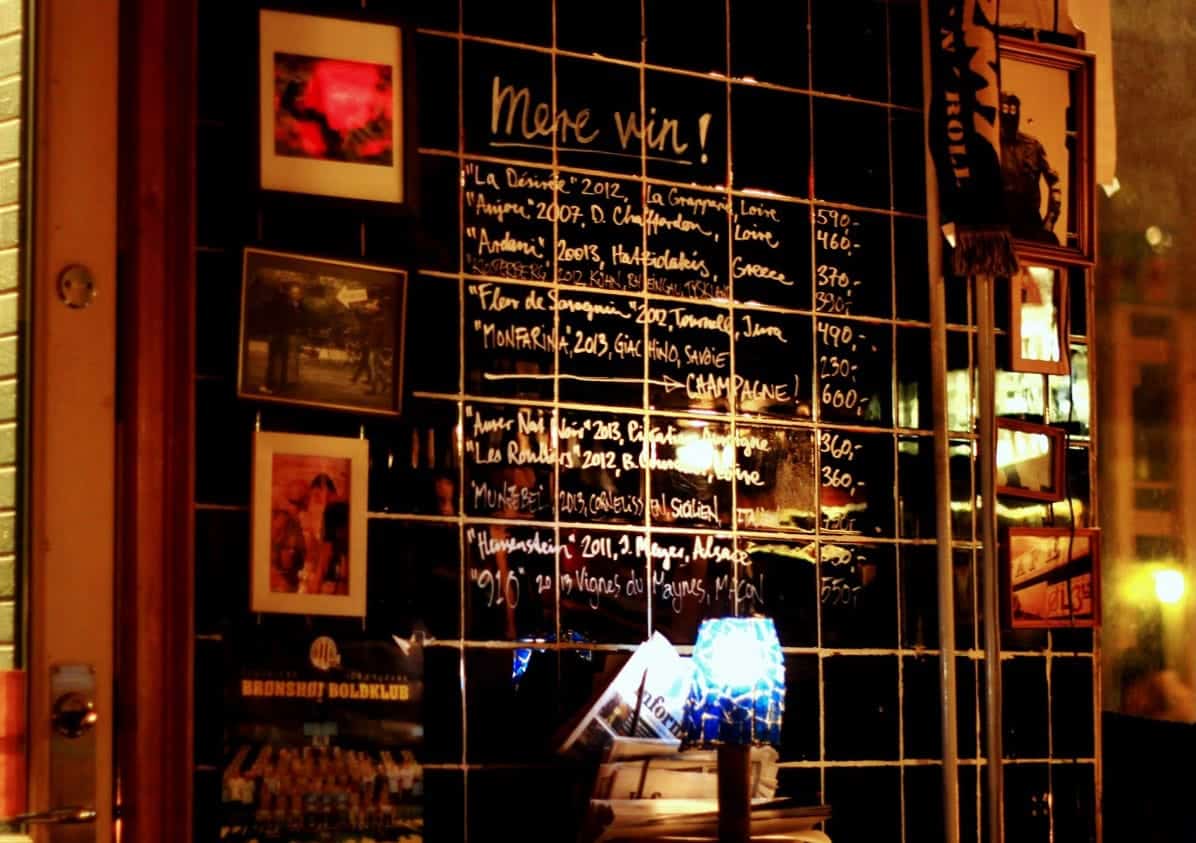 Mere vin!
"La Désirée" 2012, La Grapperie, Loire 590,-
"Anjou" 2007, D. Chaffardon, Loire 460,-
2013, Hatzidakis, Greece 370,-
2012, KÜHN, RHEINGAU, TYSKLAND 390,-
"Fleur de Savagnin" 2012, Tournelle, Jura 490,-
"MONFARINA", 2013, GIACHINO, SAVOIE 230,-
CHAMPAGNE! 600,-
"Auver Nat Noir" 2013, Auvergne 360,-
"Les Rouliers" 2012, B. Courault, Loire 360,-
"MUNJEBEL", 2013, CORNELISSEN, SICILIEN, ITALIEN
2011, J. Meyer, Alsace 550,-
"910" 2013 Vignes du Maynes, MACON 550,-
BRØNSHØJ BOLDKLUB
Inform
N ROLL